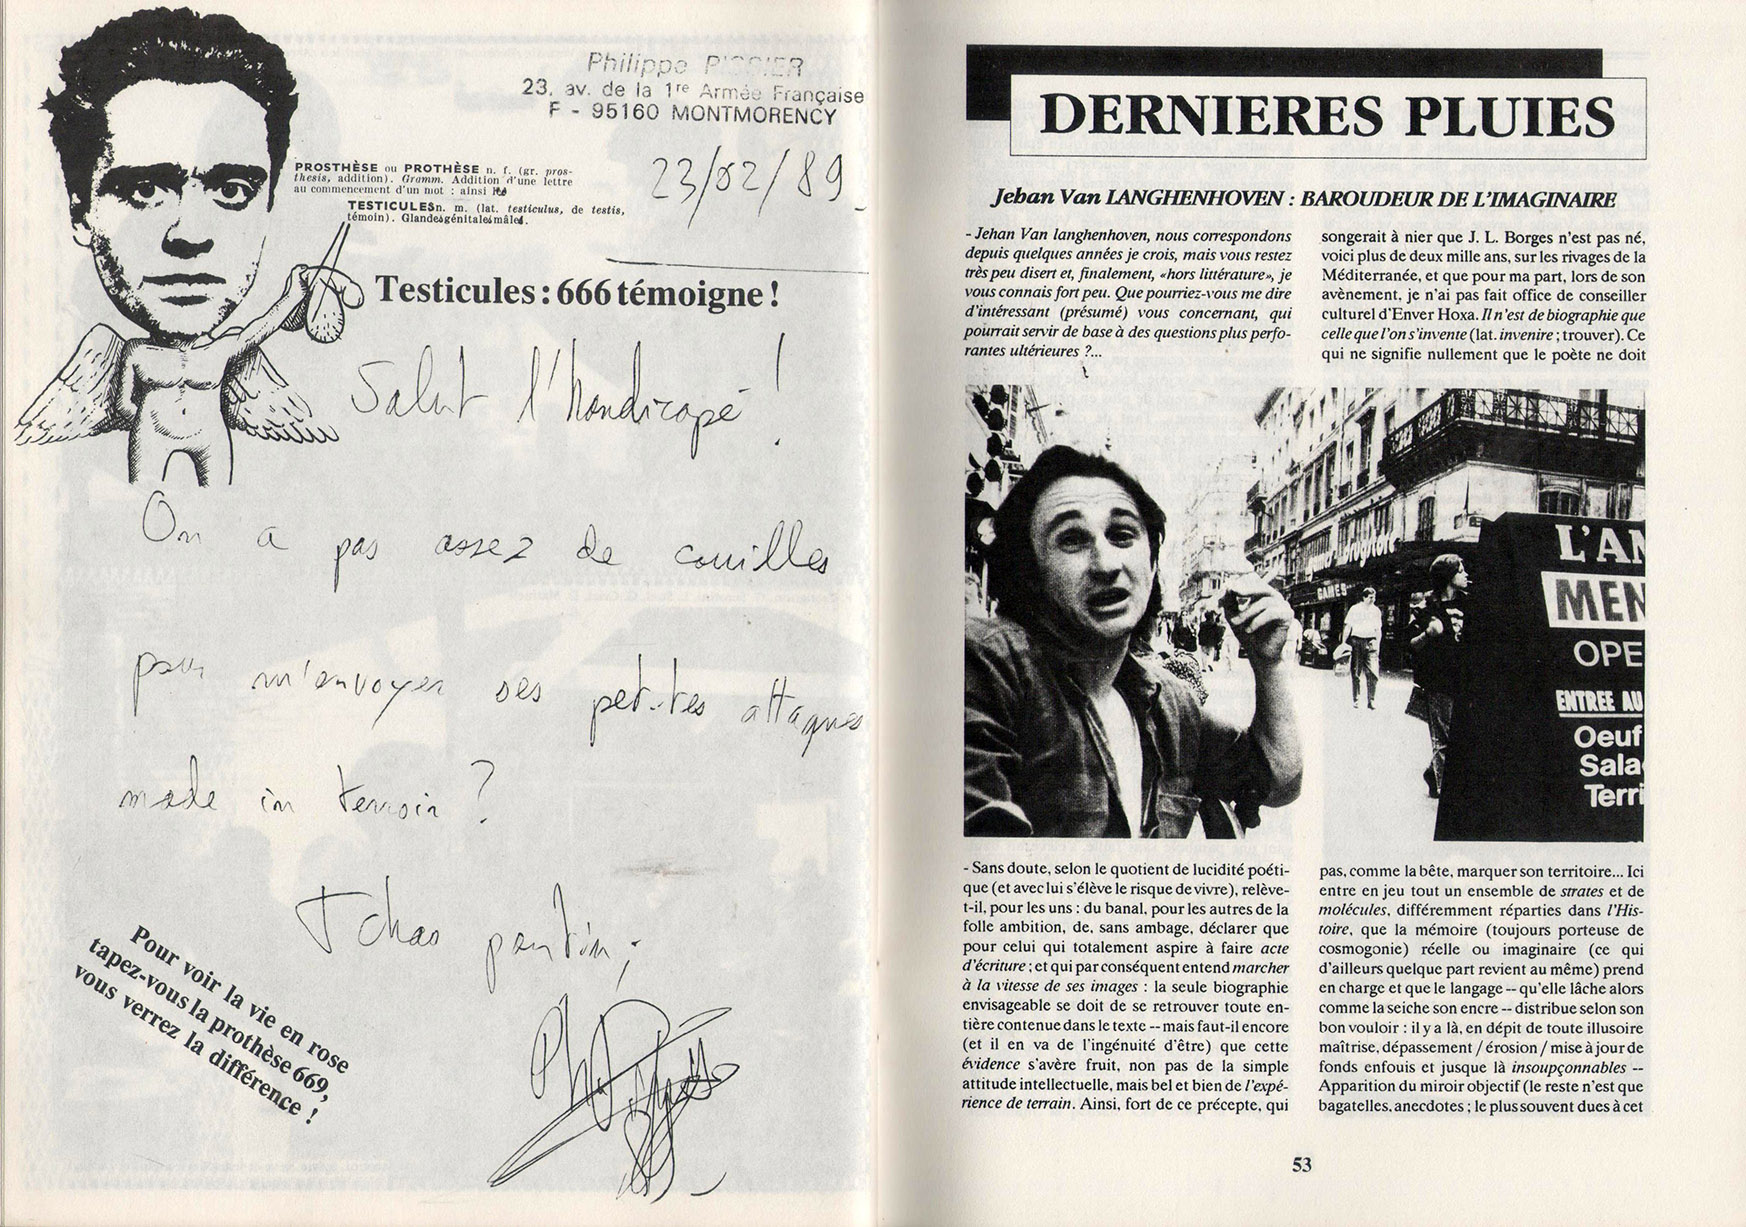 Philippe PISSIER
23, av. de la 1re Armée Française
F - 95160 MONTMORENCY
23/02/89
PROSTHÈSE ou PROTHÈSE n. f. (gr. pros-
thesis, addition). Gramm. Addition d'une lettre
au commencement d'un mot : ainsi
TESTICULES n. m. (lat. testiculus, de testis,
témoin). Glandes génitales mâles.
Testicules : 666 témoigne !
Salut l'handicapé !
On a pas assez de couilles
pour m'envoyer ses petites attaques
made in terroir ?
Tchao pantin ;
Pour voir la vie en rose
tapez-vous la prothèse 669,
vous verrez la différence !
DERNIERES PLUIES
Jehan Van LANGHENHOVEN : BAROUDEUR DE L'IMAGINAIRE
- Jehan Van langhenhoven, nous correspondons
depuis quelques années je crois, mais vous restez
très peu disert et, finalement, «hors littérature», je
vous connais fort peu. Que pourriez-vous me dire
d'intéressant (présumé) vous concernant, qui
pourrait servir de base à des questions plus perfo-
rantes ultérieures ?...
songerait à nier que J. L. Borges n'est pas né,
voici plus de deux mille ans, sur les rivages de la
Méditerranée, et que pour ma part, lors de son
avènement, je n'ai pas fait office de conseiller
culturel d'Enver Hoxa. Il n'est de biographie que
celle que l'on s'invente (lat. invenire ; trouver). Ce
qui ne signifie nullement que le poète ne doit
GAMES
L'AN
MEN
OPE
ENTREE AU
Oeuf
Sala
Terri
- Sans doute, selon le quotient de lucidité poéti-
que (et avec lui s'élève le risque de vivre), relève-
t-il, pour les uns : du banal, pour les autres de la
folle ambition, de, sans ambage, déclarer que
pour celui qui totalement aspire à faire acte
d'écriture ; et qui par conséquent entend marcher
à la vitesse de ses images : la seule biographie
envisageable se doit de se retrouver toute en-
tière contenue dans le texte -- mais faut-il encore
(et il en va de l'ingénuité d'être) que cette
évidence s'avère fruit, non pas de la simple
attitude intellectuelle, mais bel et bien de l'expé-
rience de terrain. Ainsi, fort de ce précepte, qui
pas, comme la bête, marquer son territoire... Ici
entre en jeu tout un ensemble de strates et de
molécules, différemment réparties dans l'His-
toire, que la mémoire (toujours porteuse de
cosmogonie) réelle ou imaginaire (ce qui
d'ailleurs quelque part revient au même) prend
en charge et que le langage -- qu'elle lâche alors
comme la seiche son encre -- distribue selon son
bon vouloir : il y a là, en dépit de toute illusoire
maîtrise, dépassement / érosion / mise à jour de
fonds enfouis et jusque là insoupçonnables --
Apparition du miroir objectif (le reste n'est que
bagatelles, anecdotes ; le plus souvent dues à cet
53